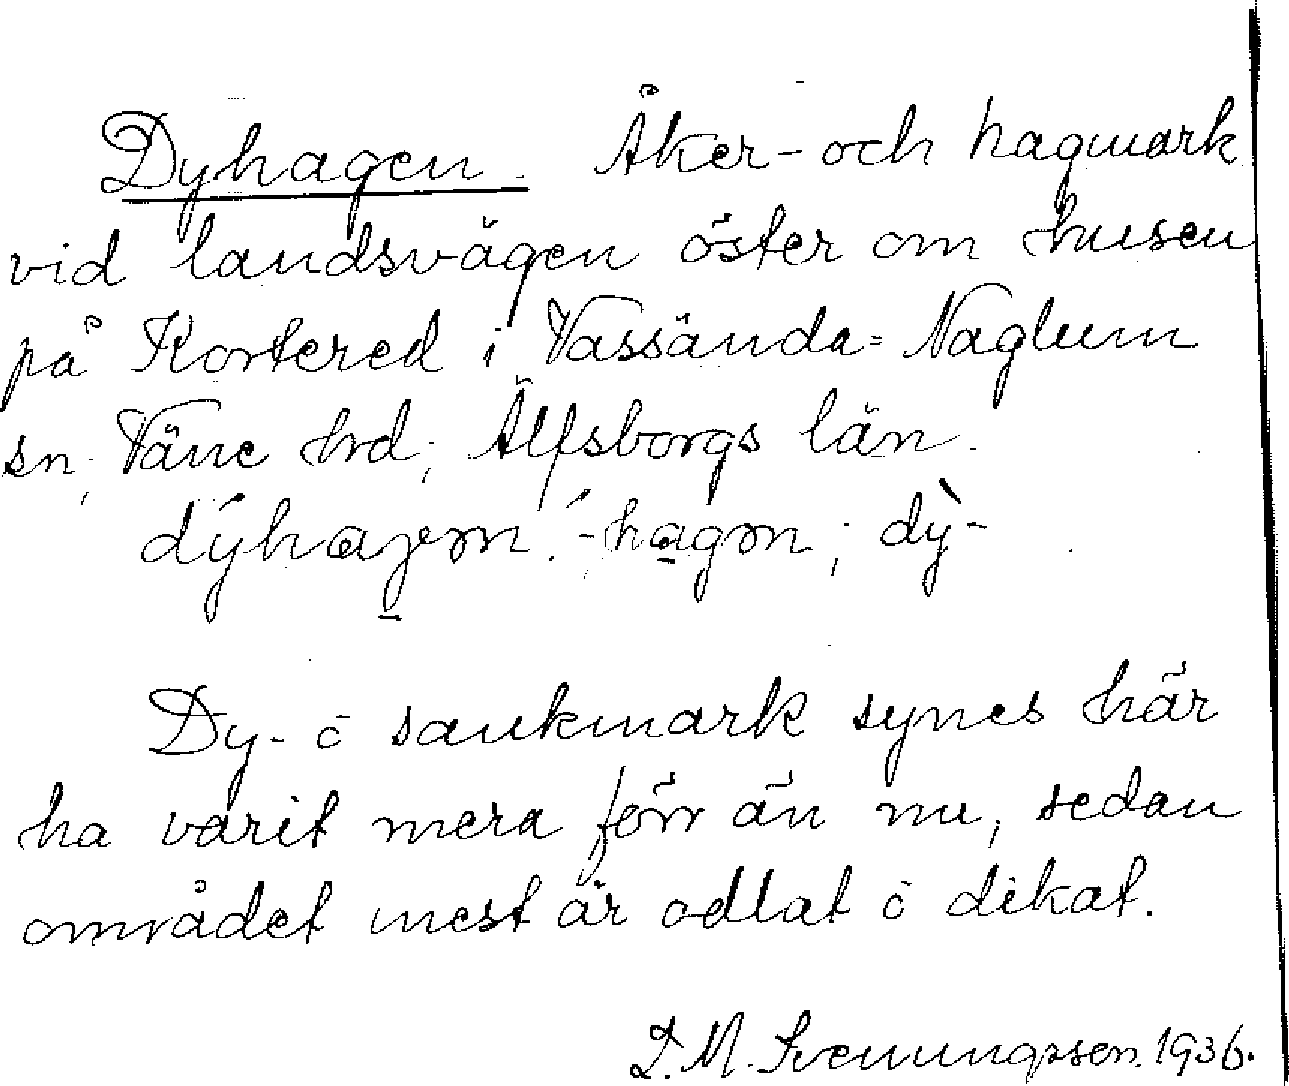 Dyhagen. Åker- och hagmark
vid landsvägen öster om husen
på Kortered i Vassända-Naglum
sn, Väne hrd, Älfsborgs län.
-hagon, dỳ-
Dy- ō sankmark synes här
ha varit mera förr än nu, sedan
området mest är odlat ō dikat.
M. Svenungsson. 1936.